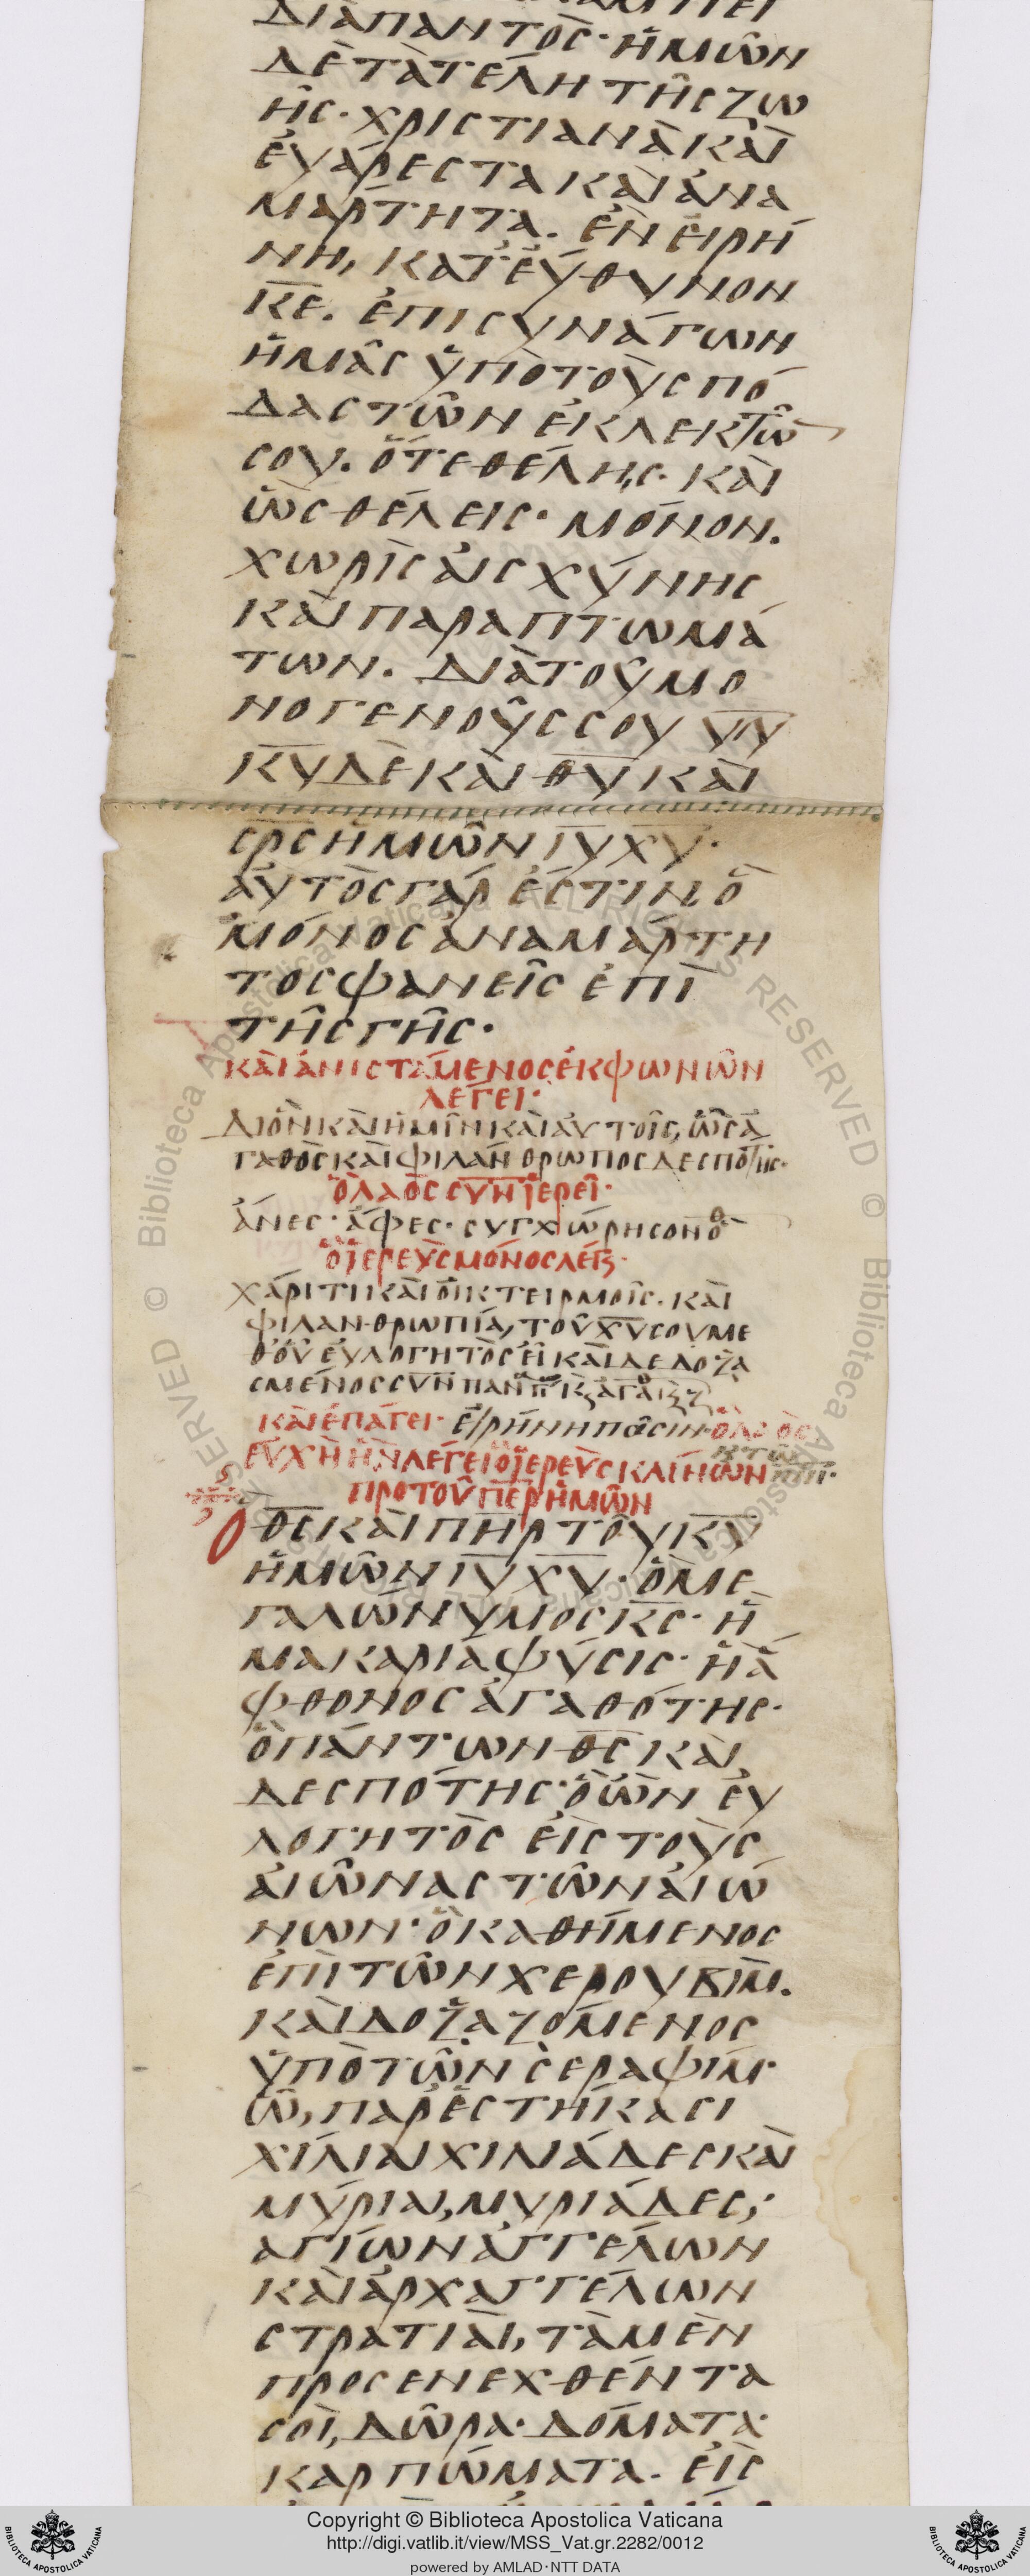 ΔΙΑΠΑΝΤῸϹ· ἩΜΩ͂Ν
ΔῈ ΤᾺ ΤΈΛΗ ΤΗ͂Ϲ ΖΩ
Η͂Ϲ· ΧΡΙϹΤΙΑΝᾺ ΚΑῚ
ἘΥΆΡΕϹΤΑ ΚΑῚ ἈΝΑ
ΜΆΡΤΗΤΑ. ἘΝ ΕΙΡΉ
ΝΗ, ΚΑΤΕΎΘΥΝΟΝ
ΚΕ. ἘΠΙϹΥΝΆΓΩΝ
ἩΜΑ͂Ϲ ὙΠῸ ΤΟῪϹ ΠΌ
ΔΑϹ ΤΩ͂Ν ἘΚΛΕΚΤΩ͂
ϹΟΥ. ὍΤΕ ΘΈΛΗϹ· ΚΑῚ
ὩϹ ΘΈΛΕΙϹ· ΜΌΝΟΝ.
ΧΩΡῚϹ ΑἸϹΧΎΝΗϹ
ΚΑῚ ΠΑΡΑΠΤΩΜΆ
ΤΩΝ. ΔΙᾺ ΤΟΥ ΜΟ
ΝΟΓΕΝΟΥ͂Ϲ ϹΟΥ ΥΥ
ΚΥ ΔῈ ΚΑῚ ΘΥ ΚΑῚ
ϹΡϹ ἩΜΩ͂Ν ΙΥ ΧΥ·
ἈΥΤῸϹ ΓΆΡ ἘϹΤΙΝ Ὁ
ΜΌΝΟϹ ἈΝΑΜΆΡΤΗ
ΤΟϹ ΦΑΝΕῚϹ ἘΠῚ
ΤΗ͂Ϲ ΓΗ͂Ϲ·
ΚΑῚ ἈΝΙϹΤΆΜΕΝΟϹ ἘΚΦΩΝΩ͂Ν
ΛΈΓΕΙ·
ΔΙ ὋΝ ΚΑῚ ἩΜΙ͂Ν ΚΑῚ ΑΥΤΟΙ͂Ϲ, ὩϹ Ἀ
ΓΑΘῸϹ ΚΑῚ ΦΙΛΆΝΘΡΩΠΟϹ ΔΕϹΠΌΤΗϹ·
Ὁ ΛΑῸϹ ϹΥΝ ἹΕΡΕΙ͂·
ἌΝΕϹ· ἌΦΕϹ· ϹΥΓΧΏΡΗϹΟΝ Ὁ Θ
Ὁ ἹΕΡΕῪϹ ΜΌΝΟϹ ΛΈΓΕΙ·
ΧΆΡΙΤΙ ΚΑῚ ΟἸΚΤΕΙΡΜΟΙ͂Ϲ· ΚΑῚ
ΦΙΛΑΝΘΡΩΠΊΑ, ΤΟΥ͂ ΧΥ ϹΟΥ ΜΕ
Θ ΟΥ͂ ΕΥΛΟΓΗΤῸϹ ΕἾ ΚΑῚ ΔΕΔΟΞΑ
ϹΜΈΝΟϹ ϹΥΝ
ΚΑῚ ἘΠΆΓΕΙ· ΕἸΡΉΝΗ ΠΑ͂ϹΙΝ· Ὁ ΛΑῸϹ
ΕΥΧῊ ἫΝ ΛΈΓΕΙ Ὁ ἹΕΡΕῪϹ ΚΛΊΝΩΝ
ΠΡΟ ΤΟΥ͂ ΠΕΡ ἩΜΩ͂Ν
Ο ΘϹ ΚΑῚ ΠΗΡ ΤΟΥ͂ ΚΥ
ἩΜΩ͂Ν ΙΥ ΧΥ· Ὁ ΜΕ
ΓΑΛΏΝΥΜΟϹ ΚϹ· Ἡ
ΜΑΚΑΡΊΑ ΦΎϹΙϹ· Ἡ Ἄ
ΦΘΟΝΟϹ ἈΓΑΘΌΤΗϹ·
Ὁ ΠΆΝΤΩΝ ΘϹ ΚΑῚ
ΔΕϹΠΌΤΗϹ· Ὁ ὪΝ ἘΥ
ΛΟΓΗΤῸϹ ἘΙϹ ΤΟῪϹ
ἈΙΩ͂ΝΑϹ ΤΩ͂Ν ἈΙΏ
ΝΩΝ· Ὁ ΚΑΘΉΜΕΝΟϹ
ἘΠῚ ΤΩ͂Ν ΧΕΡΟΥΒῚΜ.
ΚΑῚ ΔΟΞΑΖΌΜΕΝΟϹ
ὙΠῸ ΤΩ͂Ν ϹΕΡΑΦΊΜ·
Ὧ, ΠΑΡΕϹΤΉΚΑϹΙ
ΧΊΛΙΑΙ ΧΙΛΙΆΔΕϹ ΚΑῚ
ΜΎΡΙΑΙ, ΜΥΡΙΆΔΕϹ,·
ΑΓΊΩΝ ἈΓΓΈΛΩΝ
ΚΑῚ ἈΡΧΑΓΓΈΛΩΝ
ϹΤΡΑΤΙΑΊ, ΤᾺ ΜῈΝ
ΠΡΟϹΕΝΕΧΘΈΝΤΑ
ϹΟῚ, ΔΩ͂ΡΑ· ΔΌΜΑΤΑ·
ΚΑΡΠΏΜΑΤΑ· ἘΙϹ
Copyright © Biblioteca Apostolica Vaticana
http://digi.vatlib.it/view/MSS_Vat.gr.2282/0012
powered by AMLAD·NTT DATA